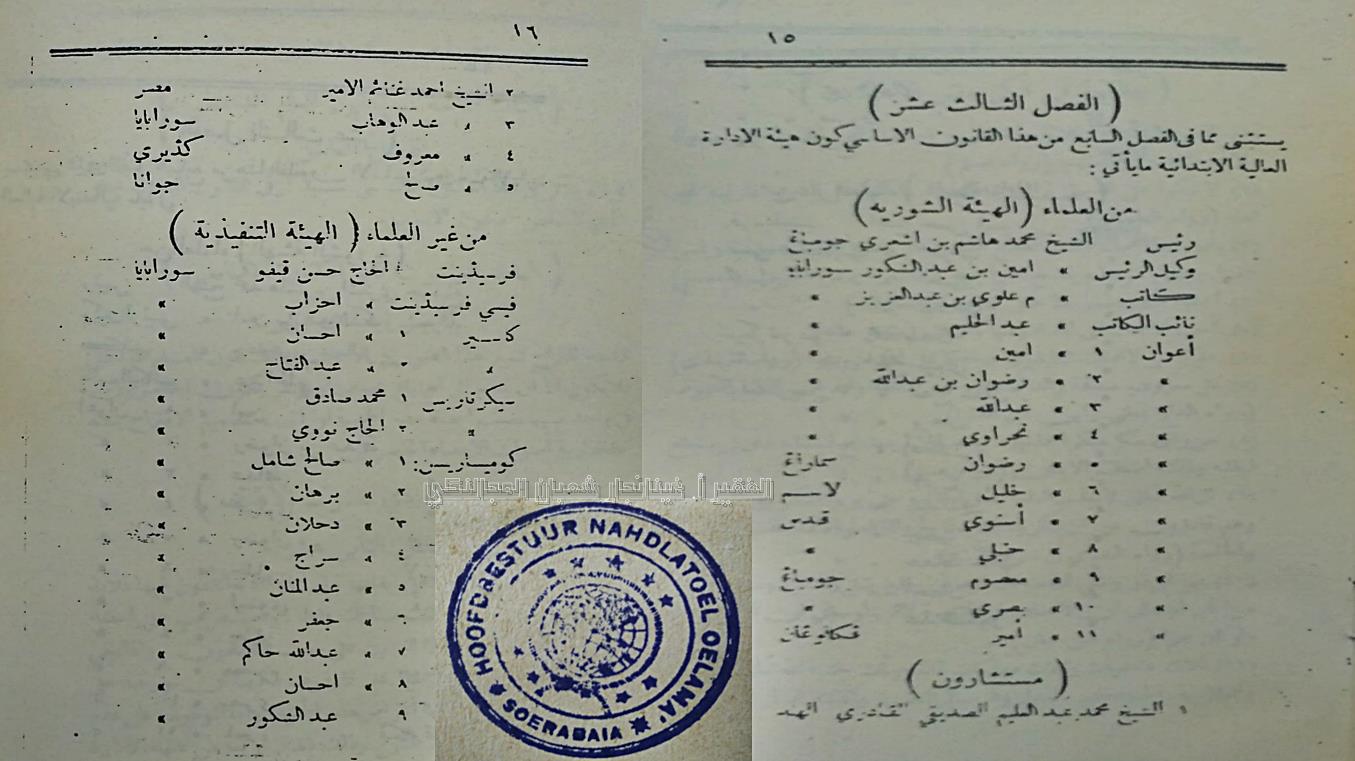 ١٥
( الفصل الثالث عشر )
يستثنى مما فى الفصل السابع من هذا القانون الاساسي كون هيئة الادارة
العالية الابتدائية مايأتي :
من العلماء ( الهيئة الشوريه )
رئيس الشيخ محمد هاشم بن اشعري جومباڠ
وكيل الرئيس » امين بن عبد الشكور سورابايا
كاتب » م علوي بن عبد العزيز »
نائب الكاتب » عبد الحليم »
أعوان ١ » امين »
» ٢ » رضوان بن عبدالله »
» ٣ » عبدالله »
» ٤ » نحراوي »
» ٥ » رضوان سماراڠ
» ٦ » خليل لاسم
» ٧ » أسنوي قدس
» ٨ » »
» ٩ » معصوم جومباڠ
» ١٠ » بصري »
» ١١ » أمير
( مستشارون )
١ الشيخ محمد عبد العليم الصديقي القادري الهند
١٦
٢ الشيخ احمد غنائم الامير مصر
٣ » عبد الوهاب سورابايا
٤ » معروف كديري
٥ » جوانا
من غير العلماء ( الهيئة التنفيذية )
فرسيڎينت الحاج حسن ڤيفو سورابايا
فيسي فرسيڎينت » احزاب »
١ » احسان »
» ٢ » عبد الفتاح »
سيكرتاريس ١ محمد صادق »
» ٢ الحاج نووي »
كوميساريس : ١ » صالح شامل »
٢ » برهان »
٣ » دحلان »
٤ » سراج »
٥ » عبد المنان »
٦ » جعفر »
٧ » عبدالله حاكم »
٨ » احسان »
٩ » عبد الشكور »
الفقير أ. ڮينانجار شعبان المجالنكي
HOOFDBESTUUR NAHDLATOEL OELAMA'
SOERABAIA